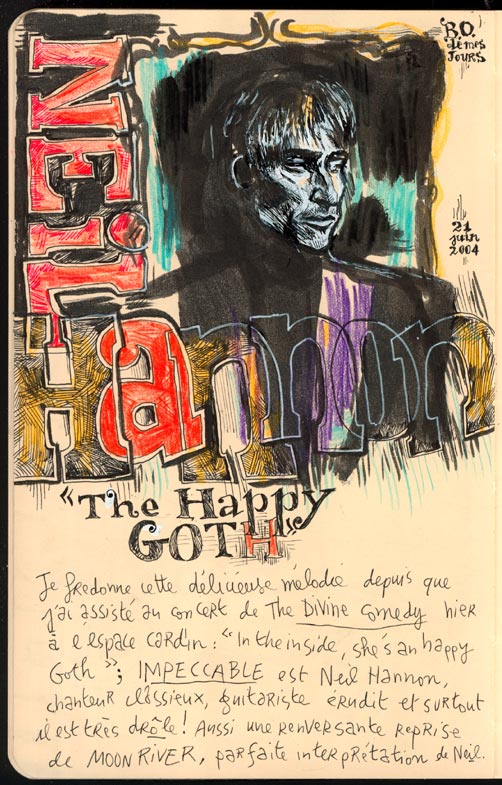 B.O.
de mes
JOURS
21
juin
2004
NEiL
Hannon
"The Happy
GOTH"
Je fredonne cette délicieuse mélodie depuis que
j'ai assisté au concert de The DiVine comedy hier
à l'espace cardin : "In the inside, she's an happy
Goth" ; IMPECCABLE est Neil Hannon,
chanteur classieux, guitariste érudit et surtout
il est très drôle ! Aussi une renversante reprise
de MOON RIVER, parfaite interprétation de Neil.